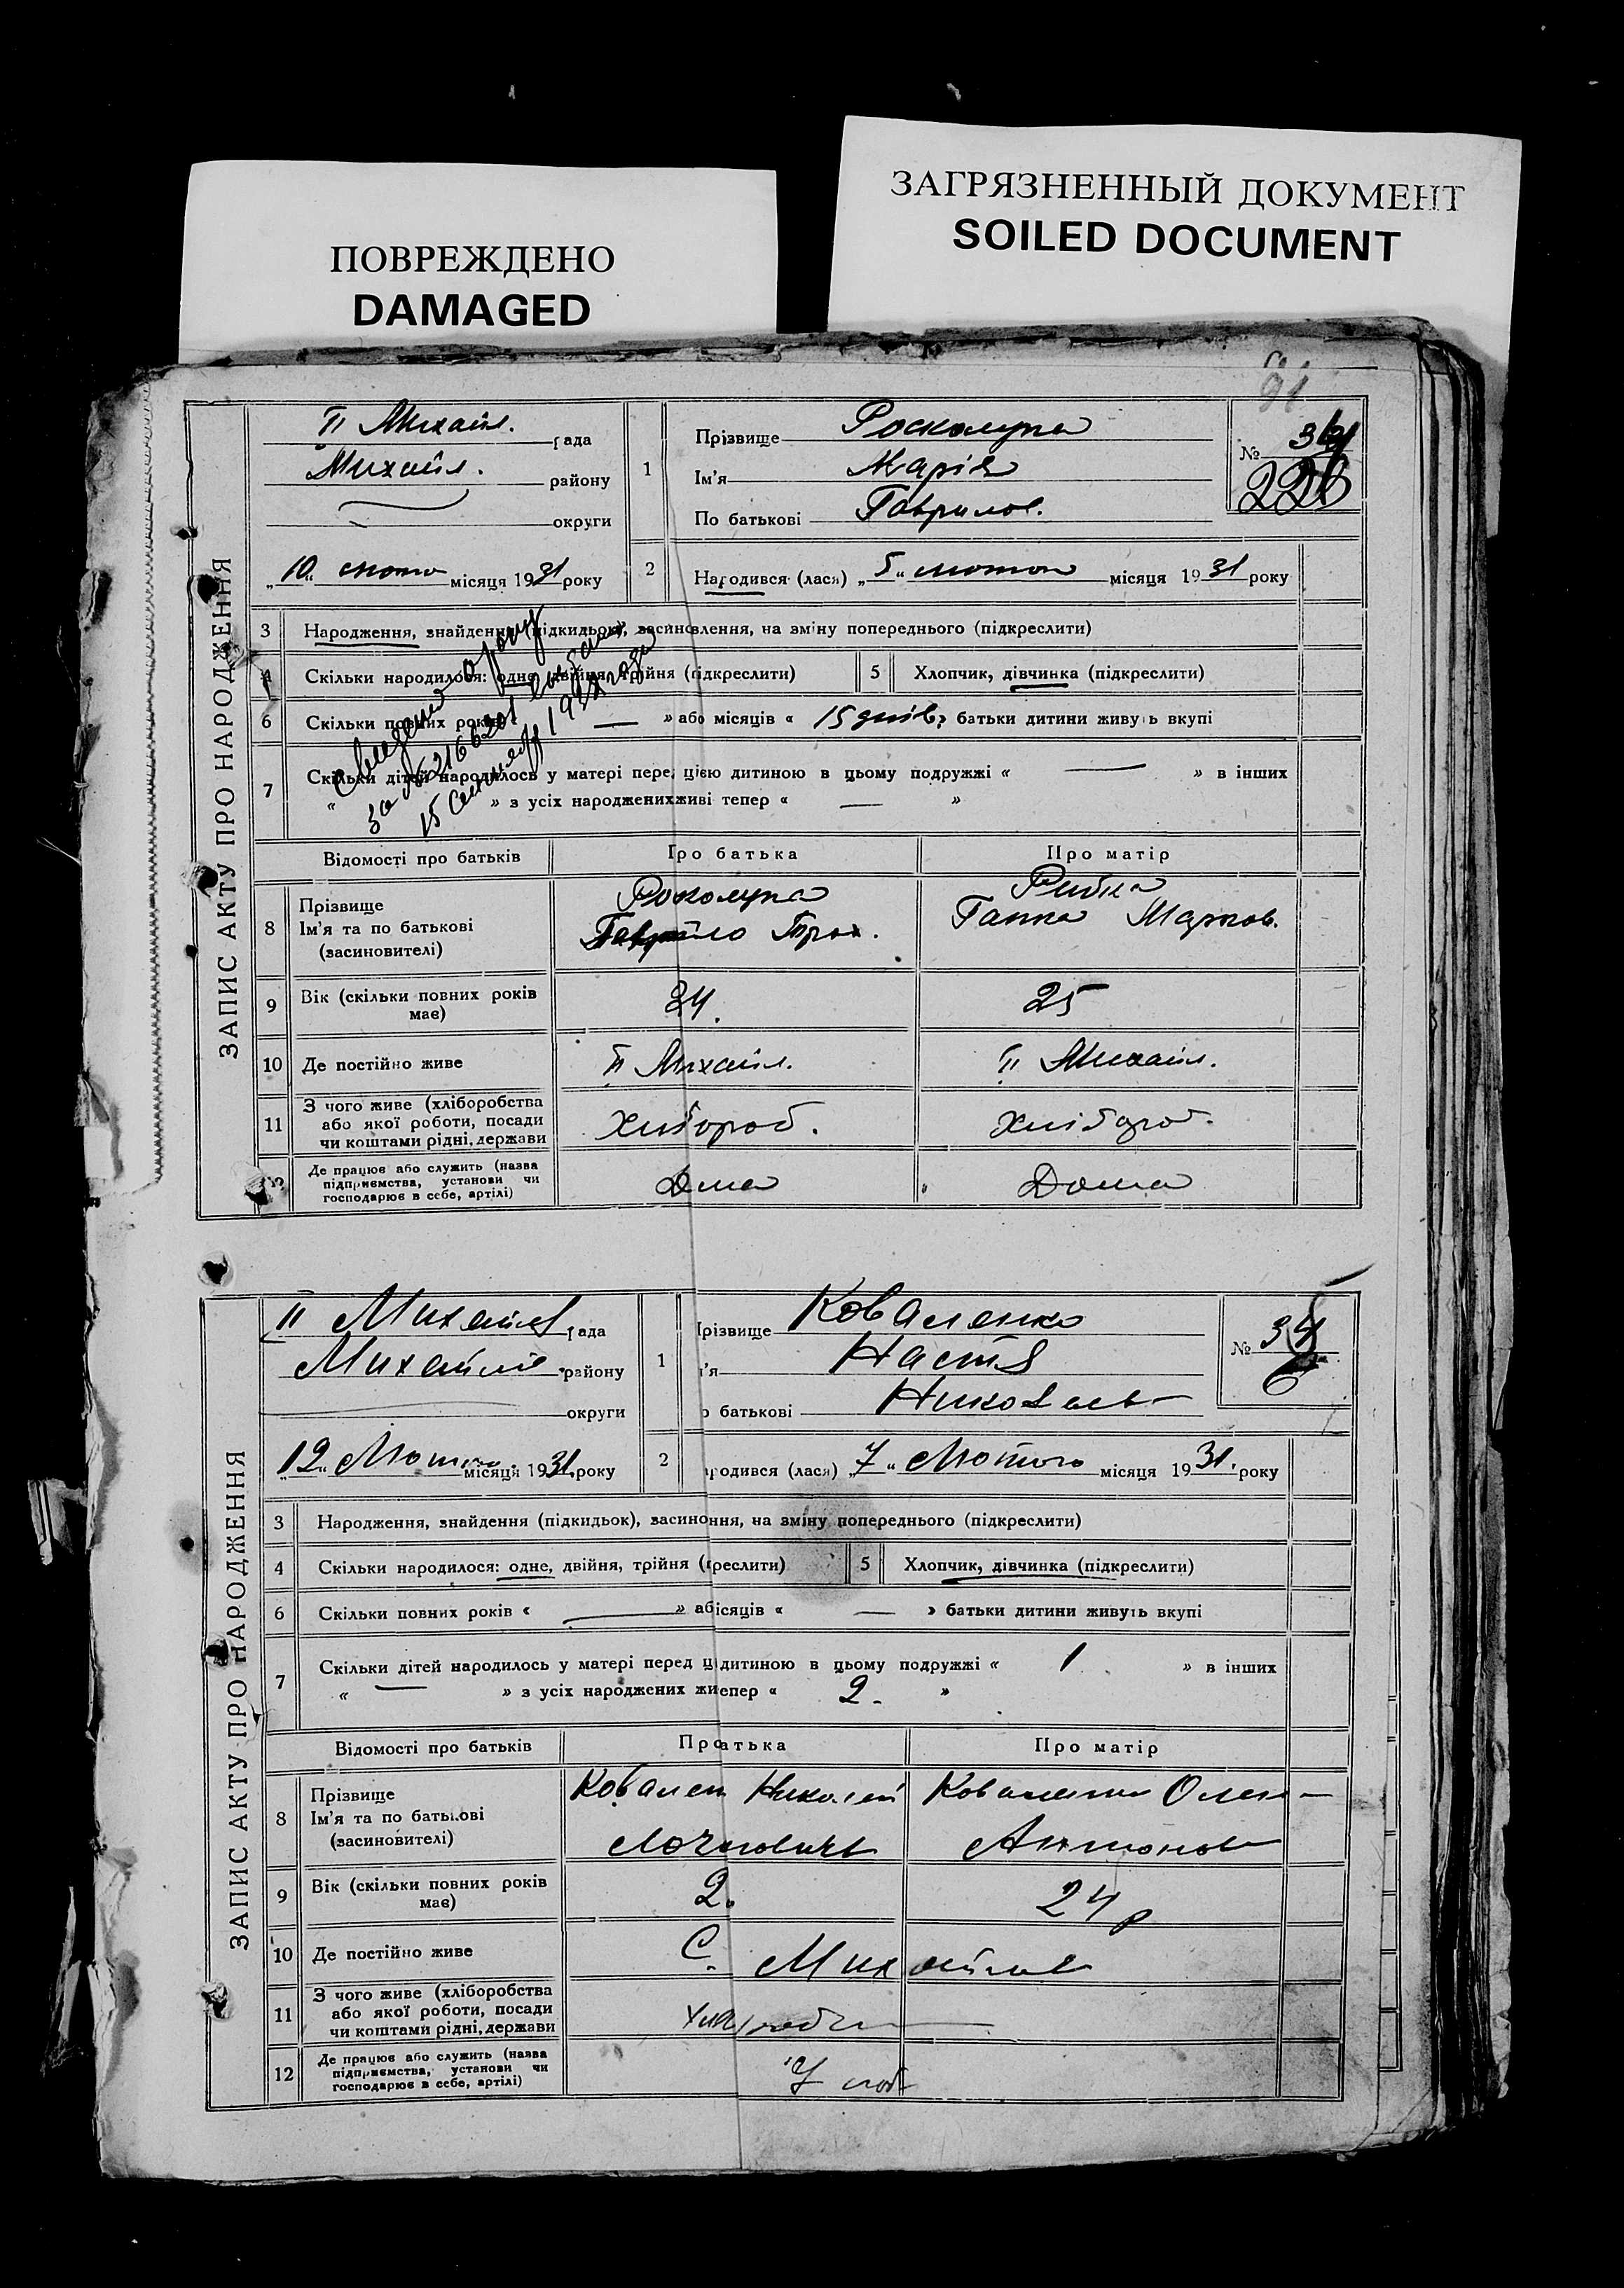 ПОВРЕЖДЕНО
DAMAGED
ЗАГРЯЗНЕННЫЙ ДОКУМЕНТ
SOILED DOCUMENT
91
ЗАПИС АКТУ ПРО НАРОДЖЕННЯ
II Михайл. рада
Михайл. району
округи
„10“ лютого місяця 1931 року
1
Прізвище Роскалупа
Ім'я Марія
По батькові Гаврилов.
№
226
2 Народився (лася) „5“ лютого місяця 1931 року
3 Народження, знайдення (підкидьок), засиновлення, на зміну попереднього (підкреслити)
4 Скільки народилося: одне, двійня, трійня (підкреслити) 5 Хлопчик, дівчинка (підкреслити)
6 Скільки повних років — » або місяців « 15 днів, батьки дитини живуть вкупі
7 Скільки дітей народилось у матері перед цією дитиною в цьому подружжі « — » в інших
« » з усіх народжених живі тепер « — »
15 1931 года
Відомості про батьків Про батька Про матір
8 Прізвище
Ім'я та по батькові
(засиновителі)
Роскалупа
Гаврило Трох.
Рибка
Ганна Марков.
9 Вік (скільки повних років має) 34. 25
10 Де постійно живе II Михайл. II Михайл.
11 З чого живе (хліборобства
або якої роботи, посади
чи коштами рідні, держави
Хлібороб. Хлібороб.
Де працює або служить (назва
підприємства, установи чи
господарює в себе, артілі)
Дома Дома
ЗАПИС АКТУ ПРО НАРОДЖЕННЯ
II Михайлів рада
Михайлів. району
округи
„12“ Лютого місяця 1931. року
1
різвище Коваленко
'я Настя
о батькові Николаев
№ 34
2 ародився (лася) „7“ Лютого місяця 1931. року
3 Народження, знайдення (підкидьок), засиноння, на зміну попереднього (підкреслити)
4 Скільки народилося: одне, двійня, трійня (креслити) 5 Хлопчик, дівчинка (підкреслити)
6 Скільки повних років « — » абісяців « — » батьки дитини живуть вкупі
7 Скільки дітей народилось у матері перед цдитиною в цьому подружжі « 1 » в інших
« — » з усіх народжених жиепер « 2. »
Відомості про батьків Проатька Про матір
8 Прізвище
Ім'я та по батькові
(засиновителі)
Ковален Николай
Коваленко Олен
Антонов
9 Вік (скільки повних років має) 2. 24 р
10 Де постійно живе С. Михайлів
11 З чого живе (хліборобства
або якої роботи, посади
чи коштами рідні, держави
12 Де працює або служить (назва
підприємства, установи чи
господарює в себе, артілі)
У